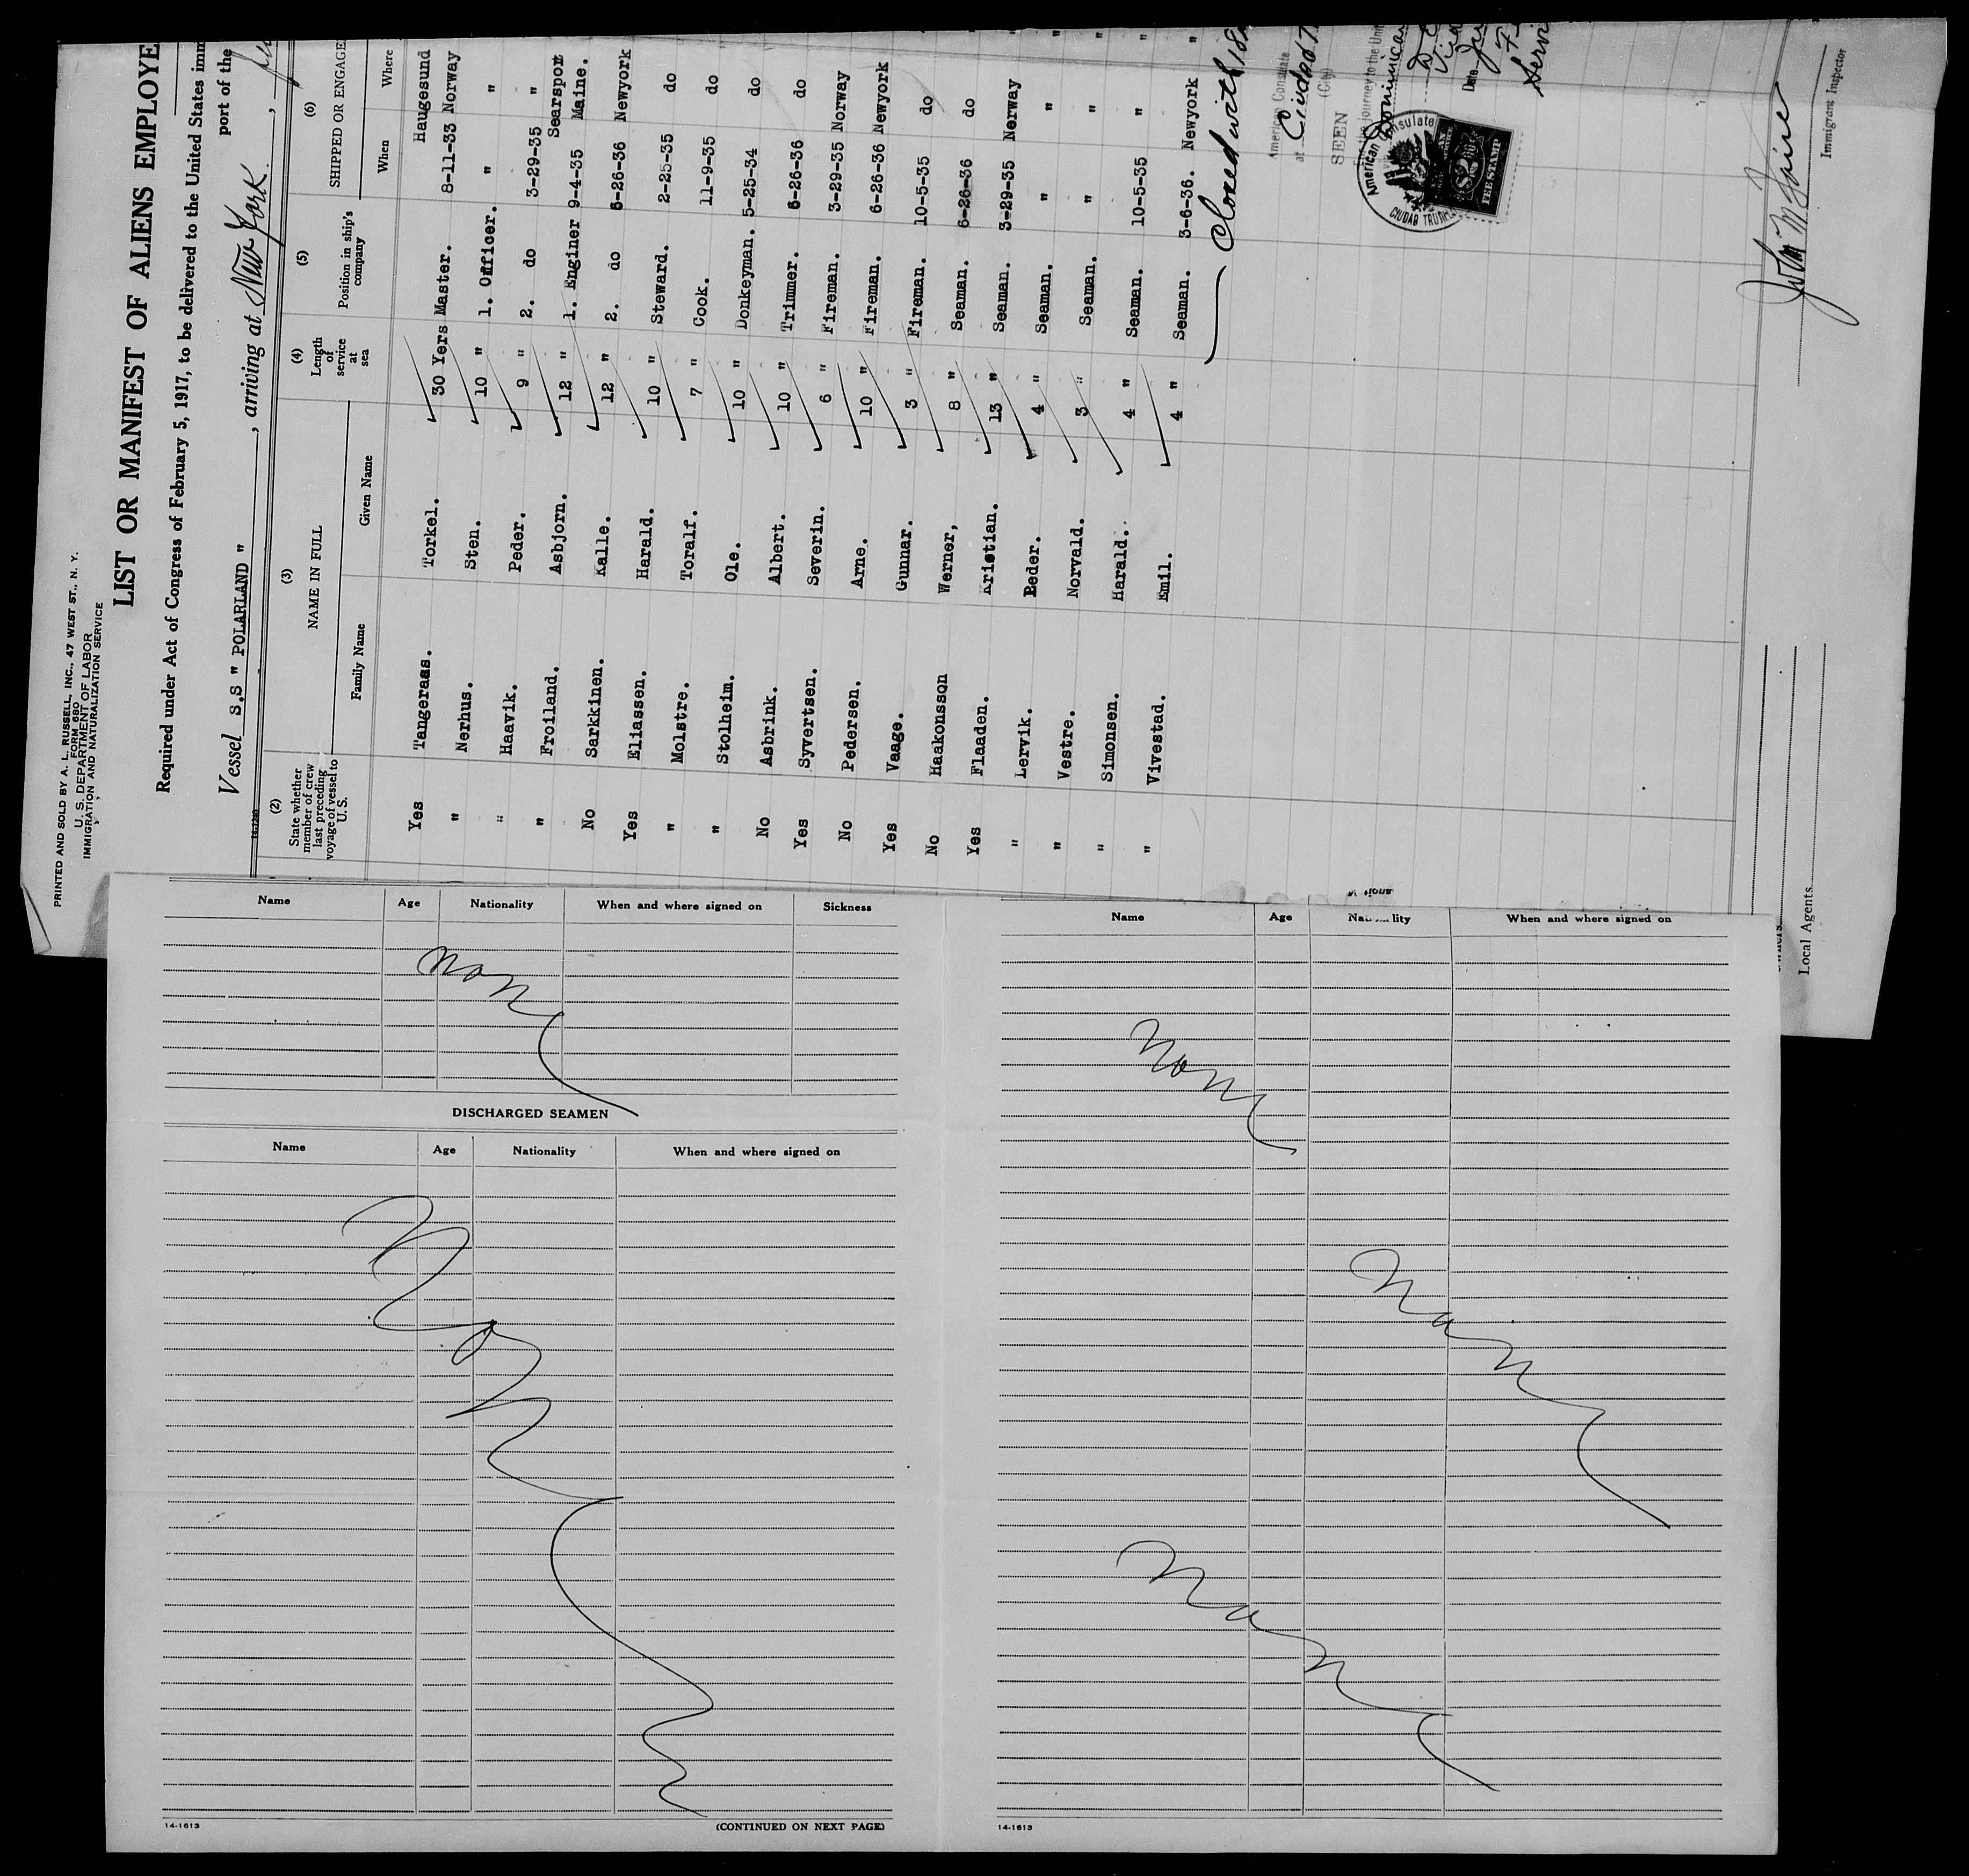 PRINTED AND SOLD BY A. L. RUSSELL, INC., 47 WEST ST., N. Y.
FORM 680
U. S. DEPARTMENT OF LABOR
IMMIGRATION AND NATURALIZATION SERVICE
LIST OR MANIFEST OF ALIENS EMPLOYE
Required under Act of Congress of February 5, 1917, to be delivered to the United States imm
port of the
Vessel S.S " POLARLAND " , arriving at New York ,
(2) (3) (4) (5) (6)
State whether member of crew last preceding voyage of vessel to U. S. NAME IN FULL Length of service at sea Position in ship's company SHIPPED OR ENGAGE
Family Name Given Name When Where
Haugesund
Yes Tangeraas. Torkel. 30 Yers Master. 8-11-33 Norway
" Nerhus. Sten. 10 " 1. Officer. " "
" Haavik. Peder. 9 " 2. do 3-29-35 "
Searsport
" Froiland. Asbjorn. 12 " 1. Enginer 9-4-35 Maine.
No Sarkkinen. Kalle. 12 " 2. do 6-26-36 Newyork
Yes Eliassen. Harald. 10 " Steward. 2-25-35 do
" Molstre. Toralf. 7 " Cook. 11-9-35 do
" Stolheim. Ole. 10 " Donkeyman. 5-25-34 do
No Asbrink. Albert. 10 " Trimmer. 6-26-36 do
Yes Syvertsen. Severin. 6 " Fireman. 3-29-35 Norway
No Pedersen. Arne. 10 " Fireman. 6-26-36 Newyork
Yes Vaage. Gunnar. 3 " Fireman. 10-5-35 do
No Haakonsson Werner, 8 " Seaman. 6-26-36 do
Yes Flaaden. Kristian. 13 " Seaman. 3-29-35 Norway
" Lervik. Beder. 4 " Seaman. " " "
" Vestre. Norvald. 3 " Seaman. " " "
" Simonsen. Harald. 4 " Seaman. 10-5-35 " "
" Vivestad. Emil. 4 " Seaman. 3-6-36. Newyork "
Closed with 18
American Consulate
at Ciudad T
(City)
SEEN
For the journey to the Unit
Dominican
Date
Servi
American Consulate
CIUDAD TRUJILLO
$2
FEE STAMP
Immigrant Inspector
Local Agents
Name Age Nationality When and where signed on Sickness
None
DISCHARGED SEAMEN
Name Age Nationality When and where signed on
None
14-1613 (CONTINUED ON NEXT PAGE)
Name Age Nationality When and where signed on
None
None
None
14-1613